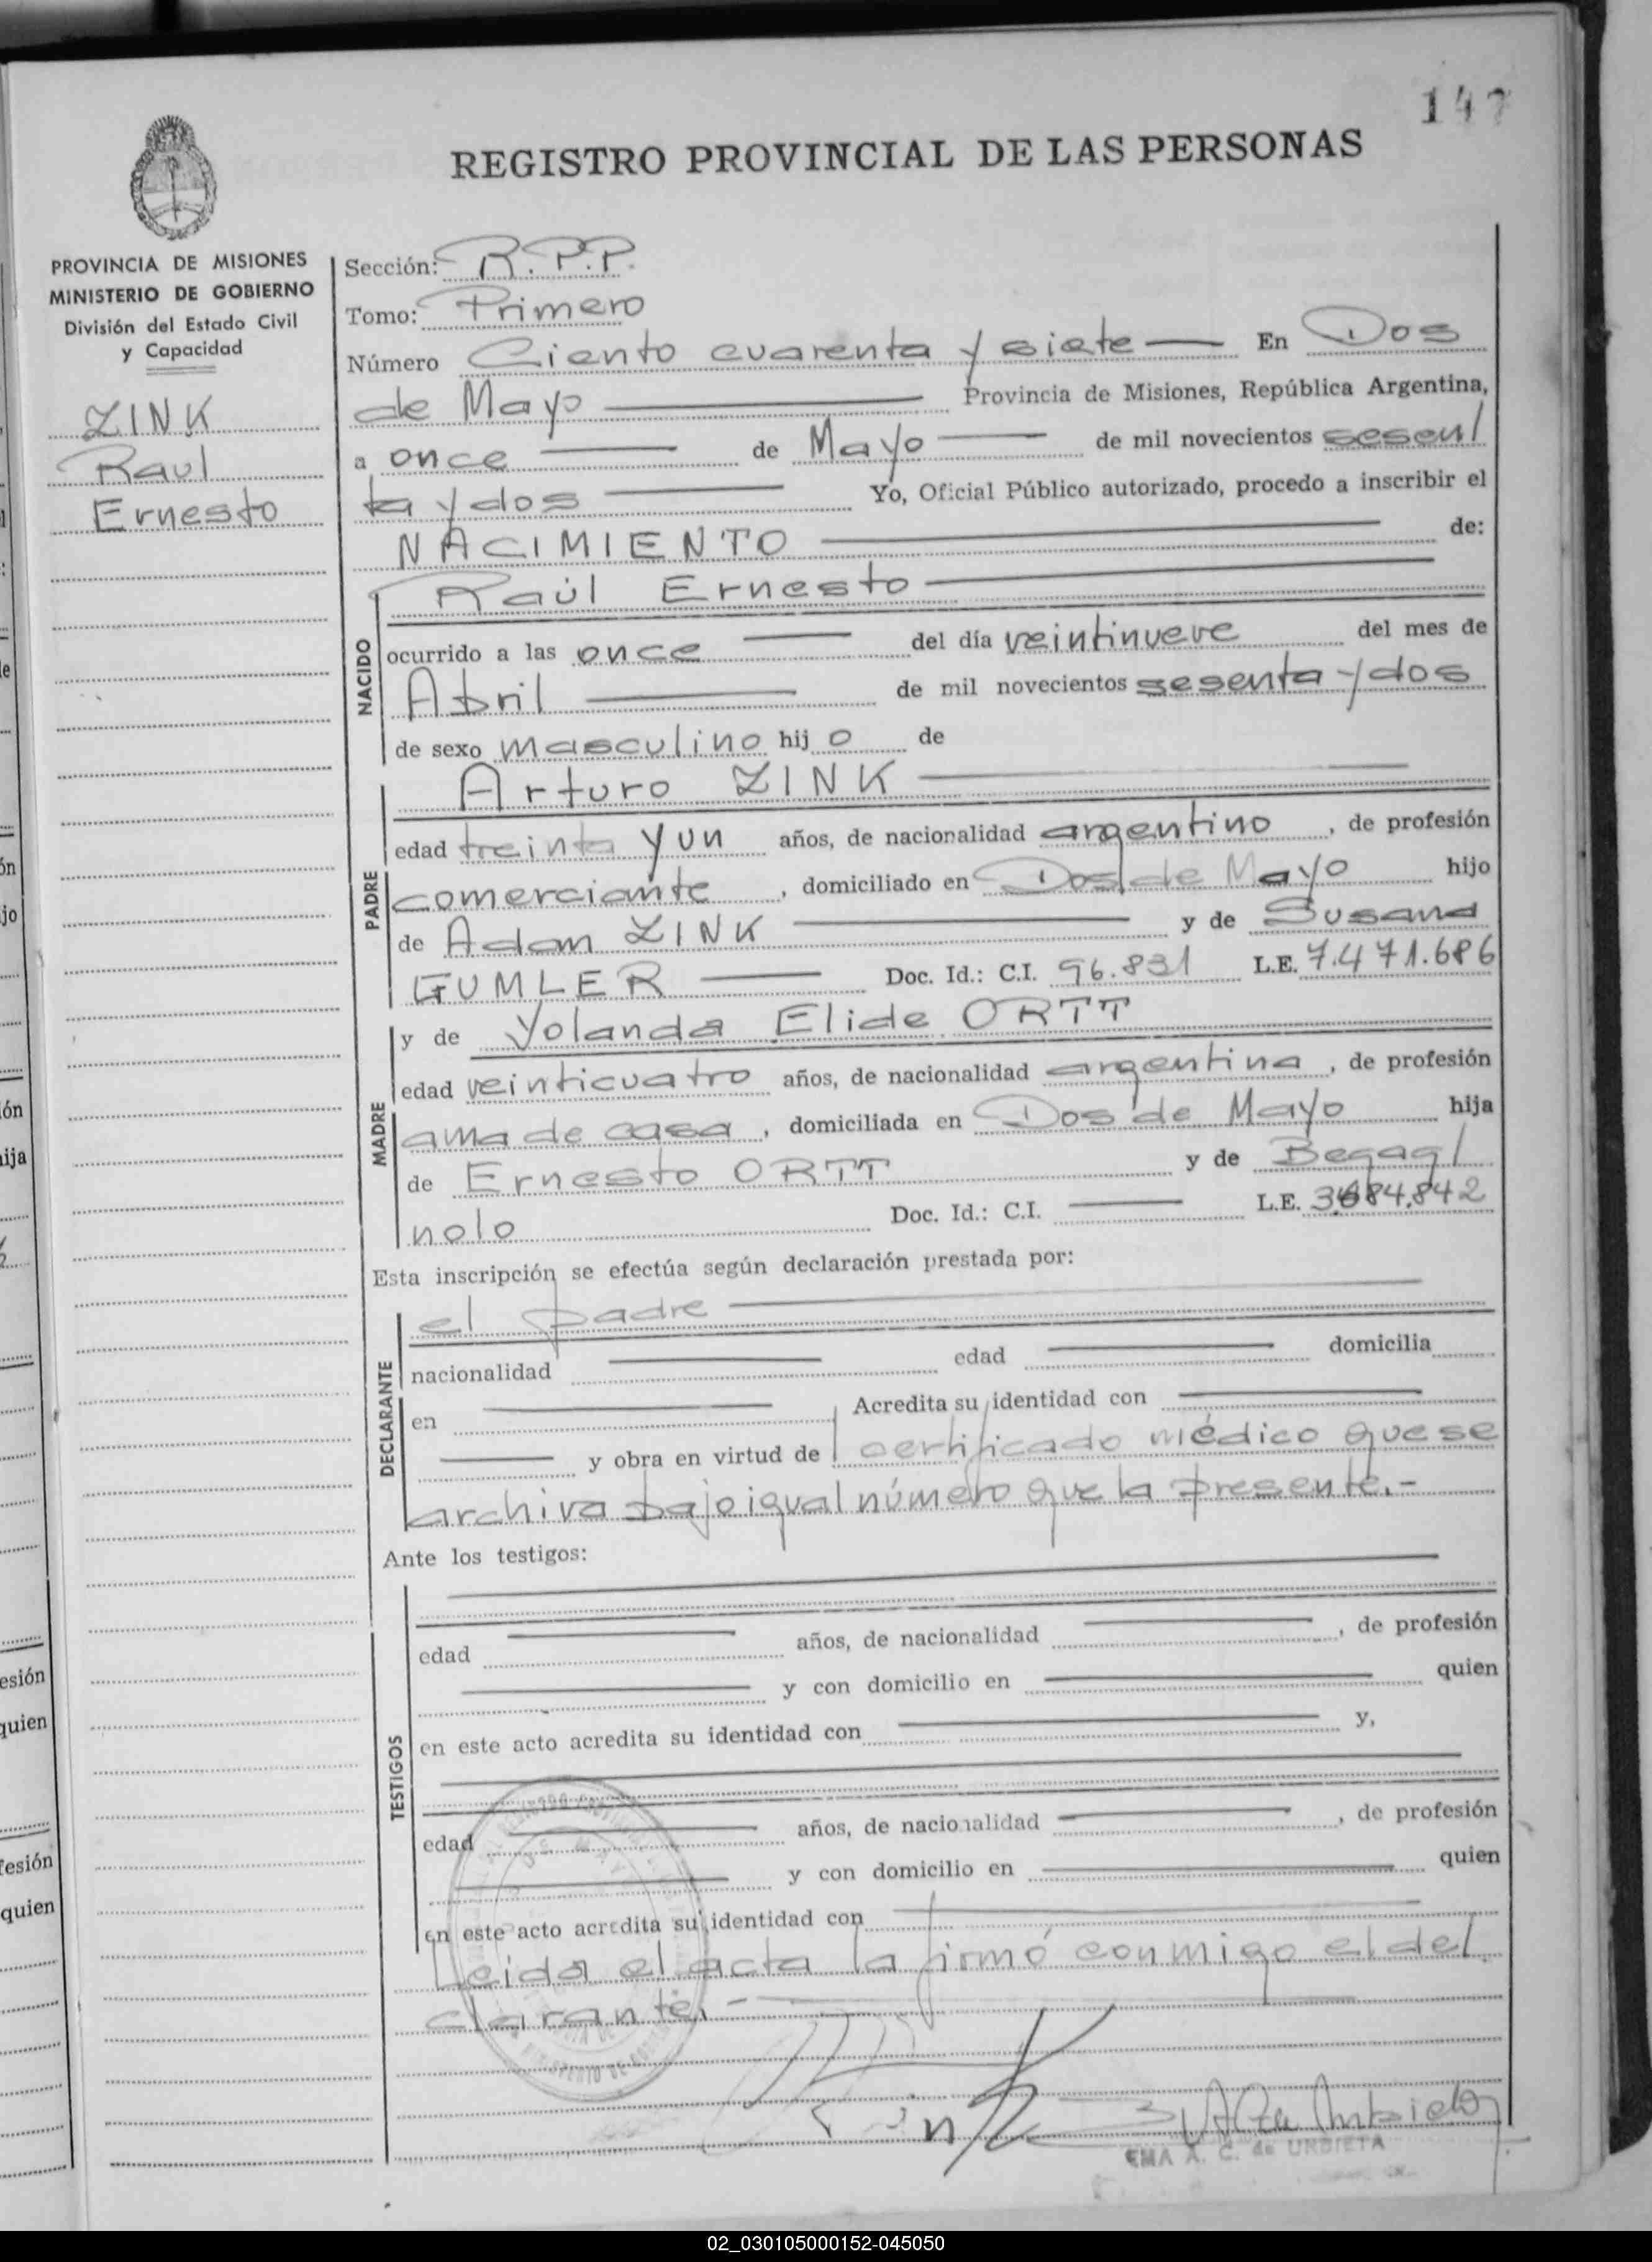 147
REGISTRO PROVINCIAL DE LAS PERSONAS
PROVINCIA DE MISIONES
MINISTERIO DE GOBIERNO
División del Estado Civil
y Capacidad
ZINK
Raul
Ernesto
Sección: R.P.P.
Tomo: Primero
Número Ciento cuarenta y siete En Dos
de Mayo Provincia de Misiones, República Argentina,
a once de Mayo de mil novecientos sesen/
ta y dos Yo, Oficial Público autorizado, procedo a inscribir el
NACIMIENTO de:
NACIDO
Raúl Ernesto
ocurrido a las once del día veintinueve del mes de
Abril de mil novecientos sesenta y dos
de sexo masculino hij o de
PADRE
Arturo ZINK
edad treinta y un años, de nacionalidad argentino, de profesión
comerciante, domiciliado en Dos de Mayo hijo
de Adam ZINK y de Susana
GUMLER Doc. Id.: C.I. 96.831 L.E. 7.471.686
MADRE
y de Yolanda Elide ORTT
edad veinticuatro años, de nacionalidad argentina, de profesión
ama de casa, domiciliada en Dos de Mayo hija
de Ernesto ORTT y de Begag/
nolo Doc. Id.: C.I. L.E. 3684.842
Esta inscripción se efectúa según declaración prestada por:
DECLARANTE
el padre
nacionalidad edad domicilia
en Acredita su identidad con
y obra en virtud de certificado médico que se
archiva bajo igual número que la presente.-
Ante los testigos:
TESTIGOS
edad años, de nacionalidad , de profesión
y con domicilio en quien
en este acto acredita su identidad con y,
edad años, de nacionalidad , de profesión
y con domicilio en quien
en este acto acredita su identidad con
Leida el acta la firmó conmigo el de/
clarante.-
Zink
EMA A. C. de URBIETA
02_030105000152-045050